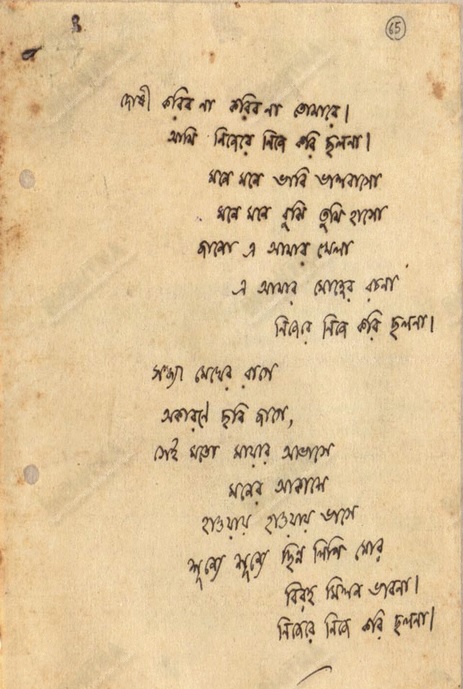 65
দোষী করিব না করিব না তোমারে।
আমি নিজেরে নিজে করি ছলনা।
মনে মনে ভাবি ভালবাসো
মনে মনে বুঝি তুমি হাসো
জানো এ আমার খেলা
এ আমার মোহের রচনা
নিজেরে নিজে করি ছলনা।
সন্ধ্যা মেঘের রাগে
অকারণে ছবি জাগে,
সেই মতো মায়ার আভাসে
মনের আকাশে
হাওয়ায় হাওয়ায় ভাসে
শূন্যে শূন্যে ছিন্ন লিপি মোর
বিরহ মিলন ভাবনা।
নিজেরে নিজে করি ছলনা।